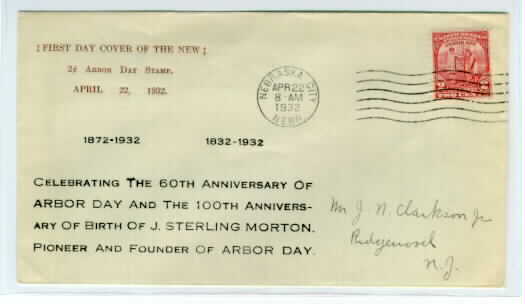 [FIRST DAY COVER OF THE NEW]
2¢ ARBOR DAY STAMP.
APRIL 22, 1932.
NEBRASKA CITY
APR 22
8-AM
1932
NEBR.
2 2
1872-1932 1832-1932
CELEBRATING THE 60TH ANNIVERSARY OF
ARBOR DAY AND THE 100TH ANNIVERS-
ARY OF BIRTH OF J. STERLING MORTON.
PIONEER AND FOUNDER OF ARBOR DAY.
Mr J. N. Clarkson Jr
N.J.